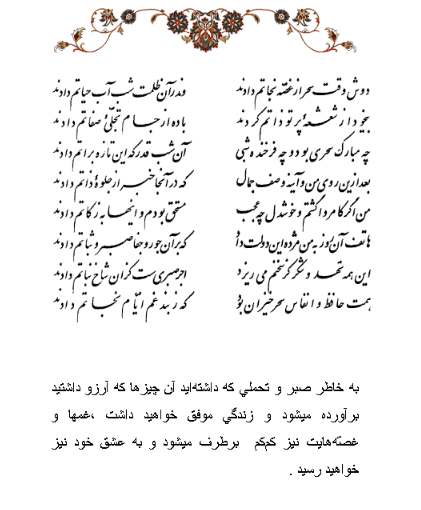 دوش وقت سحر از غصّه نجاتم دادند وندر آن ظلمت شب آب حیاتم دادند
بیخود از شعشعهٔ پرتو ذاتم کردند باده از جام تجلّی صفاتم دادند
چه مبارک سحری بود و چه فرخنده شبی آن شب قدر که این تازه براتم دادند
بعد ازین روی من و آینه وصف جمال که در آنجا خبر از جلوهٔ ذاتم دادند
من اگر کامروا گشتم و خوشدل چه عجب مستحق بودم و اینها به زکاتم دادند
هاتف آن روز به من مژده این دولت داد که بر آن جور و جفا صبر و ثباتم دادند
این همه شهد و شکر کز سخنم می ریزد اجر صبریست کزان شاخ نباتم دادند
همت حافظ و انفاس سحرخیزان بود که ز بند غم ایّام نجاتم دادند
به خاطر صبر و تحملي که داشته‌ايد آن چيزها که آرزو داشتيد
برآورده ميشود و زندگي موفق خواهيد داشت ،غمها و
غصّه‌هايت نيز کم‌کم برطرف ميشود و به عشق خود نيز
خواهيد رسيد .